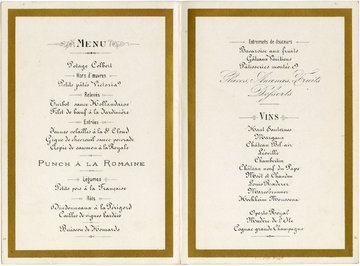 MENU
Potage Colbert
Hors d'œuvres
Petits pâtés Victoria
Relevés
Turbot sauce Hollandaise
Filet de bœuf à la Jardinière
Entrées
Jeunes volailles à la St Cloud
Gigue de chevreuil sauce poivrade
Aspic de saumon à la Royale
PUNCH À LA ROMAINE
Légumes
Petits pois à la Française
Rôts
Bardonneaux à la Périgord
Cailles de vignes bardées
Buisson de Homards
Entremets de douceurs
Bavaroise aux fruits
Gâteaux Vénitiens
Pâtisseries montées
Glaces, Ananas, Fruits
&
Desserts
VINS
Haut Sauternes
Margaux
Château Bel-air
Léoville
Chambertin
Château neuf du Pape
Moët et Chandon
Louis Rœderer
Marcobrunner
Hochheim Mousseux
Oporto Royal
Madère de l'Ile
Cognac grande Champagne